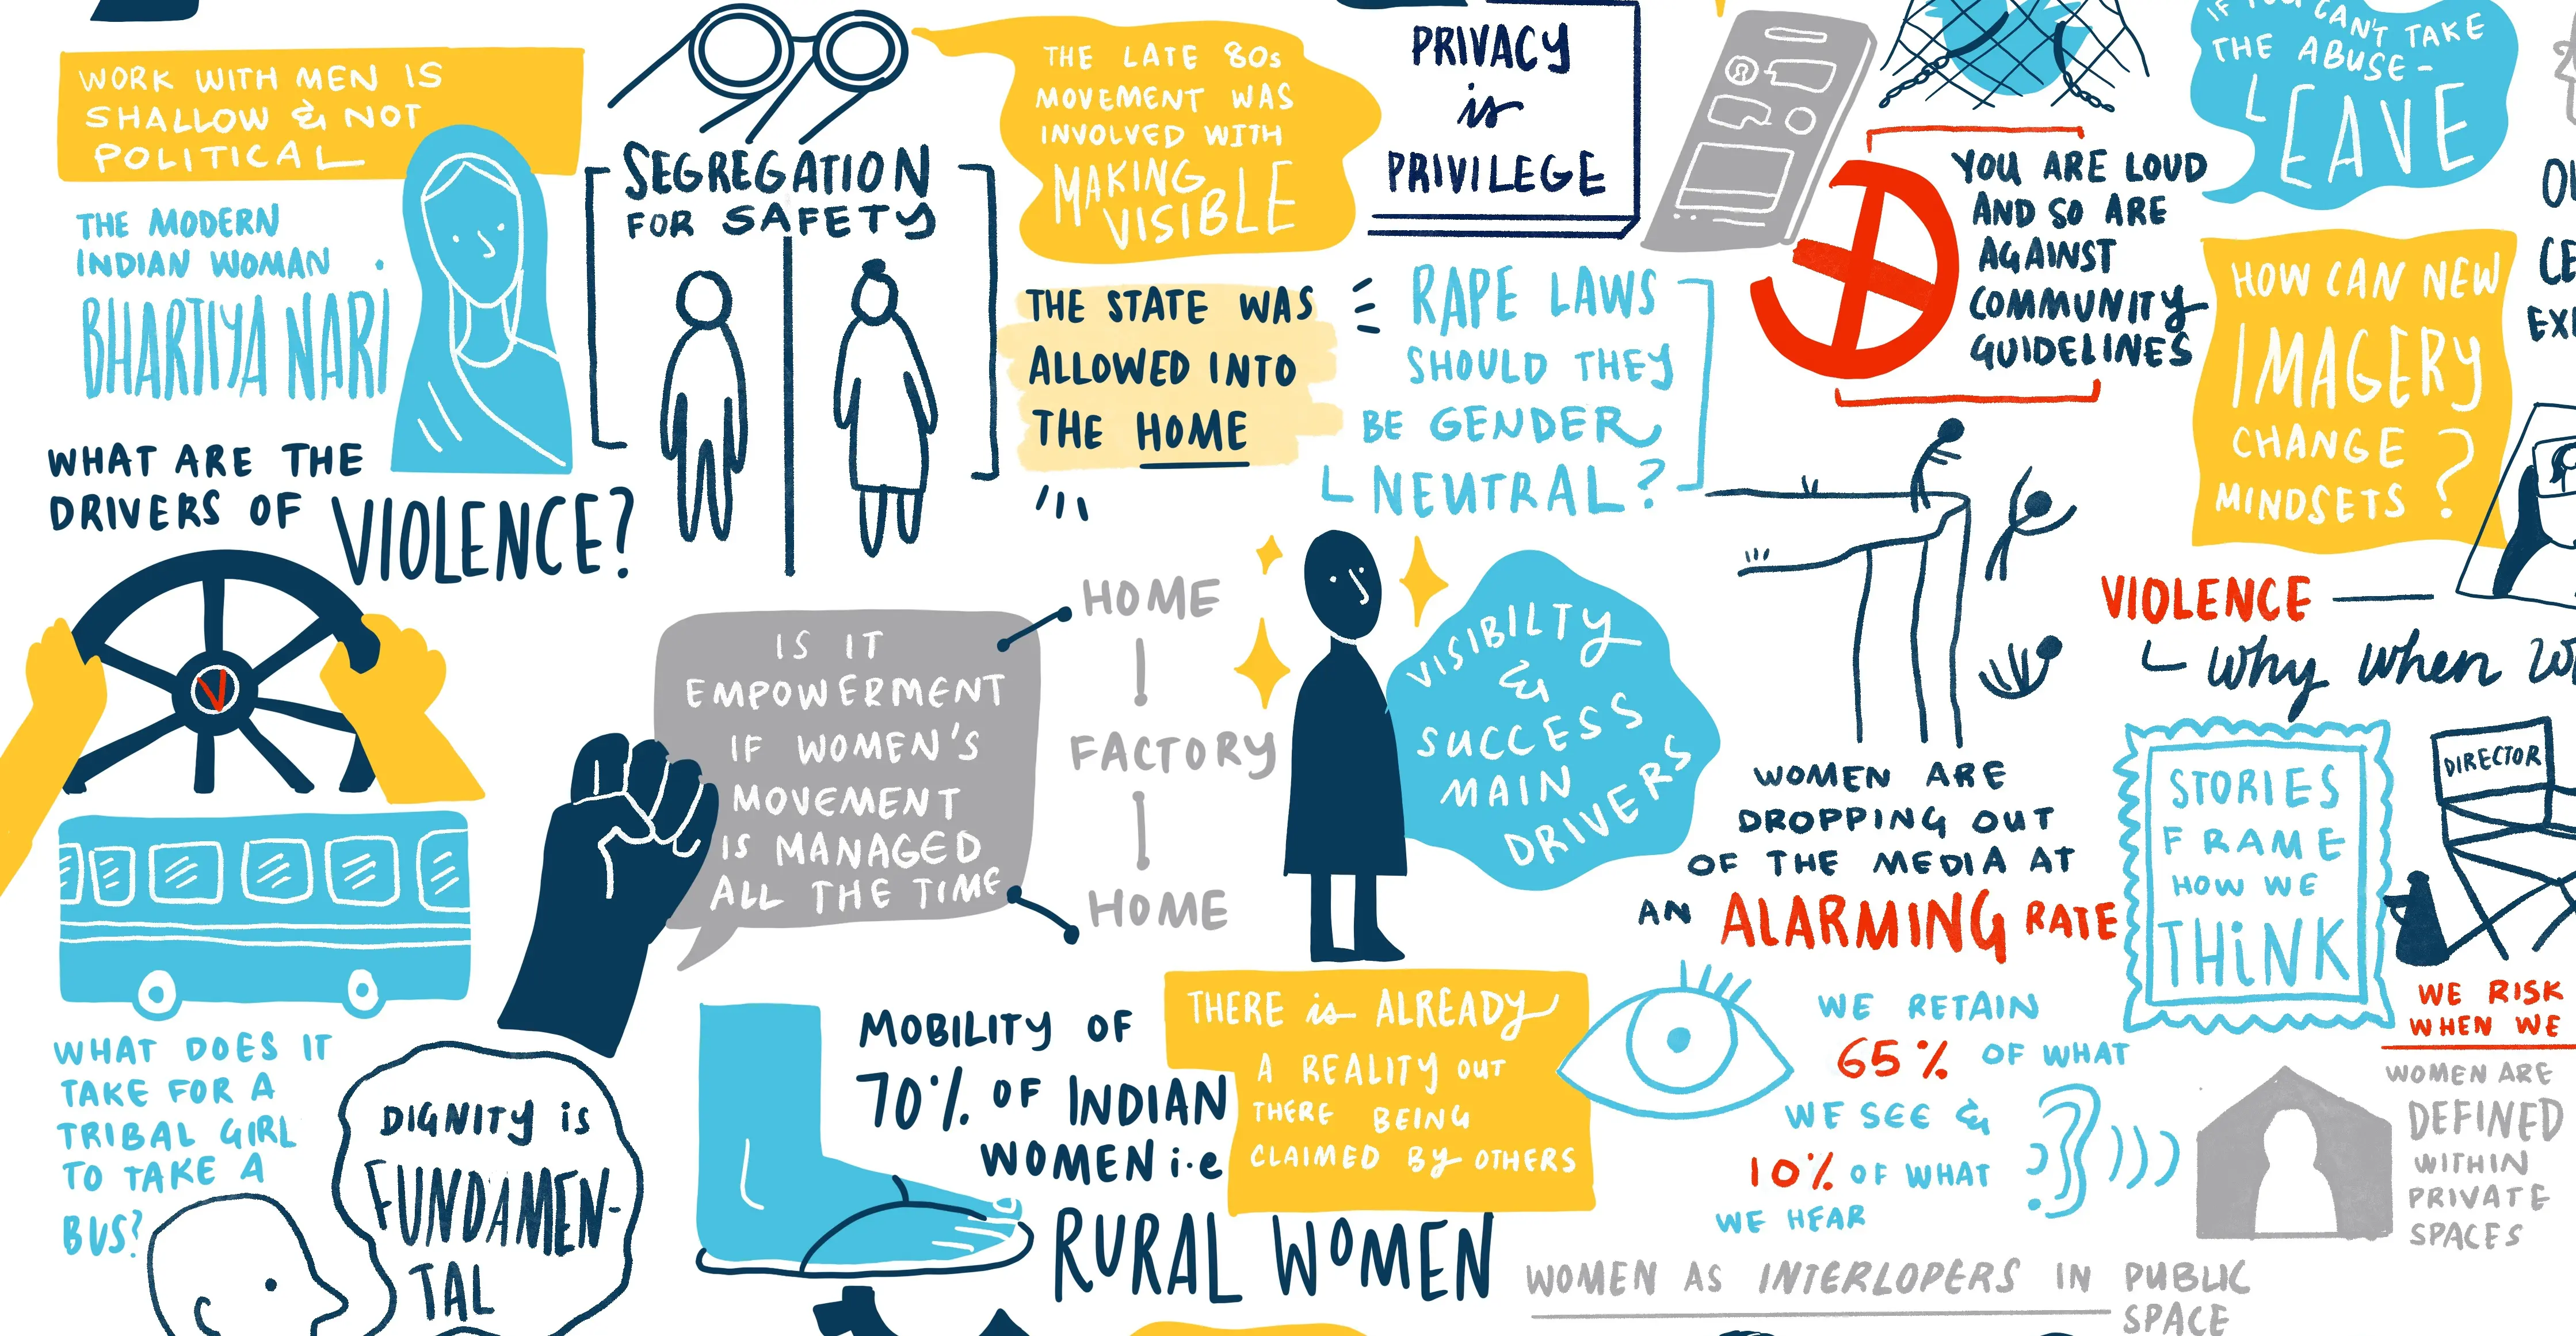 WORK WITH MEN IS
SHALLOW & NOT
POLITICAL
THE MODERN
INDIAN WOMAN
BHARTIYA NARI
WHAT ARE THE
DRIVERS OF VIOLENCE?
V
WHAT DOES IT
TAKE FOR A
TRIBAL GIRL
TO TAKE A
BUS?
DIGNITY is
FUNDAMEN-
TAL
SEGREGATION
FOR SAFETY
THE LATE 80s
MOVEMENT WAS
INVOLVED WITH
MAKING
VISIBLE
THE STATE WAS
ALLOWED INTO
THE HOME
IS IT
EMPOWERMENT
IF WOMEN'S
MOVEMENT
IS MANAGED
ALL THE TIME
HOME
FACTORY
HOME
MOBILITY OF
70% OF INDIAN
WOMEN i.e
RURAL WOMEN
PRIVACY
is
PRIVILEGE
RAPE LAWS
SHOULD THEY
BE GENDER
NEUTRAL?
VISIBILTY
&
SUCCESS
MAIN
DRIVERS
THERE is ALREADY
A REALITY OUT
THERE BEING
CLAIMED BY OTHERS
YOU ARE LOUD
AND SO ARE
AGAINST
COMMUNITY
GUIDELINES
IF YOU CAN'T TAKE
THE ABUSE-
LEAVE
HOW CAN NEW
IMAGERY
CHANGE
MINDSETS?
VIOLENCE
why when
WOMEN ARE
DROPPING OUT
OF THE MEDIA AT
AN ALARMING RATE
STORIES
FRAME
HOW WE
THiNK
DIRECTOR
WE RISK
WHEN WE
WE RETAIN
65% OF WHAT
WE SEE &
10% OF WHAT
WE HEAR
WOMEN ARE
DEFINED
WITHIN
PRIVATE
SPACES
WOMEN AS INTERLOPERS IN PUBLIC
SPACE